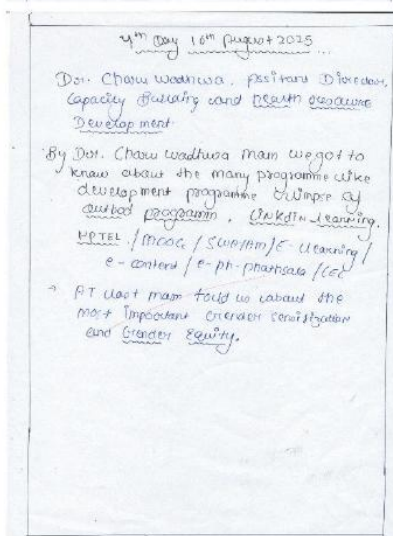 4th Day 16th August 2025 ...
Dr. Charu Wadhwa, Assitant Director,
Capacity Building and Health resource
Development
By Dr. Charu Wadhwa Mam we got to
know about the many programme like
development programme Glimpse of
programm, LinkdIn-Learning,
NPTEL / MOOC / SWAYAM / E-Learning /
e-content / e-PG-Pathsala / CEC
→ AT last mam told us about the
most impoatant Gender
and Gender Equity.